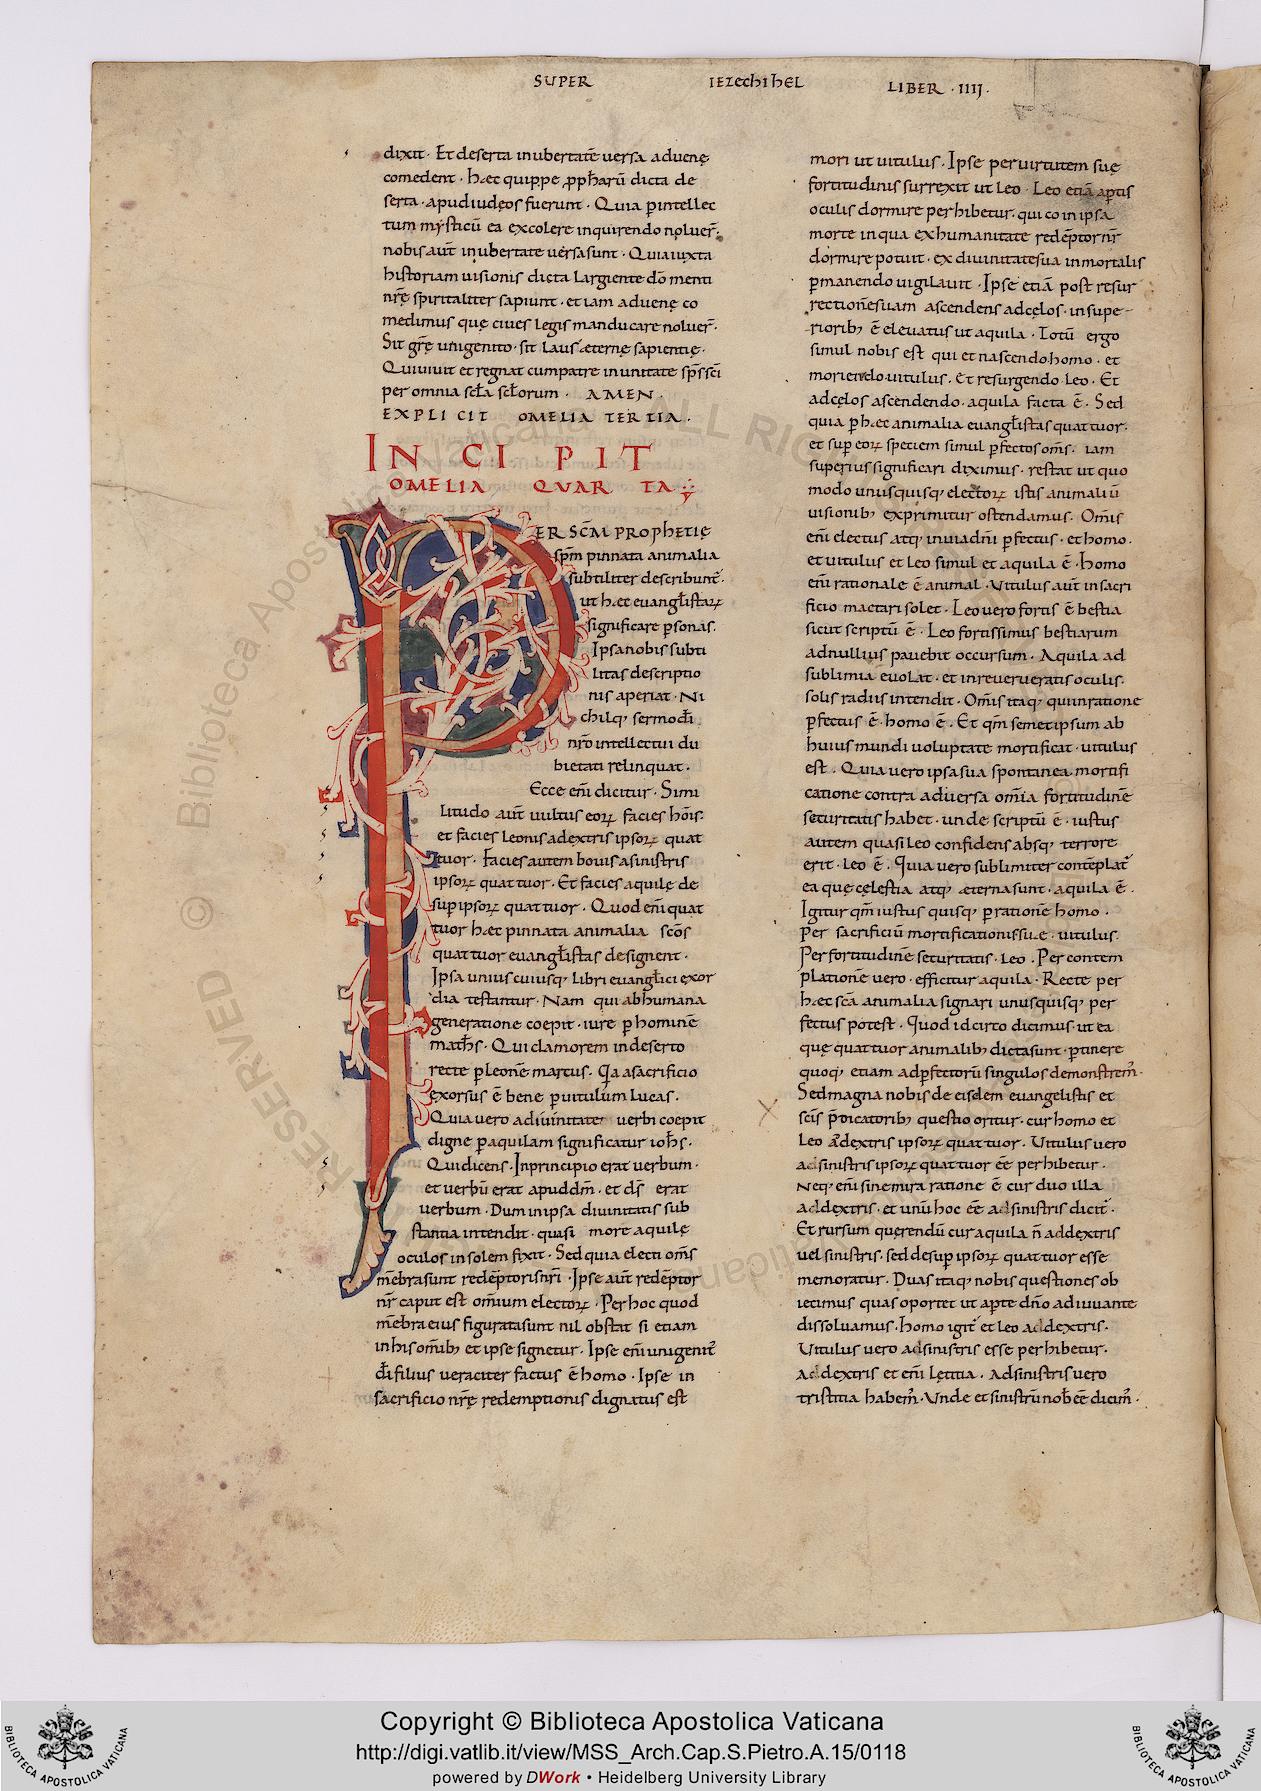 SUPER IEZEchIhEL LIBER · IIII ·
dixit · Et deserta inubertatē uersa aduenę
comedent · hæc quippe ꝓpħarū dicta de
serta · apudiudęos fuerunt · Quia pintellec
tum mysticū ea excolere inquirendo noluer̄:
nobis aut̄ inubertate uersasunt · Quiaiuxta
historiam uisionis dicta largiente dō̄ menti
nr̄ę spiritaliter sapiunt · et iam aduenę co
medimus quę ciues legis manducare noluer̄·
Sit gr̄ę unigenito · sit laus æternę sapientię ·
Quiuiuit et regnat cumpatre inunitate sp̄s sc̄i
per omnia scła scłorum · AMEN ·
EXPLICIT OMELIA TERTIA ·
INCIPIT
OMELIA QVARTA
PER SC̄M PROPHETIĘ
sp̄m pinnata animalia
subtiliter describunt̄ ·
ut hæc euangłistaꝝ
significare psonas ·
Ipsanobis subti
litas descriptio
nis aperiat · Ni
chilqꝫ sermo dī
nr̄o intellectui du
bietati relinquat ·
Ecce eni dicitur · Simi
litudo aut̄ uultus eoꝝ facies hōis ·
et facies leonis adextris ipsoꝝ quat
tuor · Facies autem bouis asinistris
ipsoꝝ quattuor · Et facies aquilę de
sup ipsoꝝ quattuor · Quod eni quat
tuor hæc pinnata animalia sc̄os
quattuor euangłistas designent ·
Ipsa unius cuiusqꝫ libri euangłici exor
dia testantur · Nam qui abhumana
generatione coepit · iure p hominē
math̄s · Qui clamorem indeserto
recte p leonē marcus · Qa asacrificio
exorsus ē bene p uitulum lucas ·
Quia uero adiuinitate uerbi coepit
digne p aquilam significatur ioħs ·
Quidicens · Inprincipio erat uerbum ·
et uerbū erat apuddm̄ · et ds̄ erat
uerbum · Dum inipsa diuinitatis sub
stantia intendit · quasi more aquilę
oculos insolem fixit · Sed quia electi om̄s
m̄ebra sunt redēptoris nr̄i · Ipse aut̄ redēptor
nr̄ caput est om̄ium electoꝝ · Per hoc quod
m̄ebra eius figurata sunt nil obstat si etiam
inhis om̄ibꝫ et ipse signetur · Ipse eni unigenit᷒
dī filius ueraciter factus ē homo · Ipse in
sacrificio nr̄ę redemptionis dignatus est
mori ut uitulus · Ipse peruirtutem suę
fortitudinis surrexit ut leo · Leo etiā aptis
oculis dormire perhibetur · qui co in ipsa
morte in qua exhumanitate redēptor nr̄
dormire potuit · ex diuinitatesua inmortalis
pmanendo uigilauit · Ipse etiā post resur
rectionēsuam ascendens adcęlos · insupe-
rioribꝫ ē eleuatus ut aquila · Totū ergo
simul nobis est qui et nascendo homo · et
moriendo uitulus · Et resurgendo leo · Et
adcęlos ascendendo · aquila facta ē · Sed
quia p hæc animalia euangłistas quattuor ·
et sup eoꝝ speciem simul pfectos om̄s · iam
superius significari diximus · restat ut quo
modo unusquisqꝫ electoꝝ istis animaliū
uisionibꝫ exprimitur ostendamus · Om̄is
eni electus atqꝫ inuia dn̄i pfectus · et homo ·
et uitulus et leo simul et aquila ē · homo
eni rationale ē animal · Vitulus aut̄ insacri
ficio mactari solet · Leo uero fortis ē bestia
sicut scriptū ē · Leo fortissimus bestiarum
adnullius pauebit occursum · Aquila ad
sublimia euolat · et inreuerueratis oculis ·
solis radiis intendit · Om̄is itaqꝫ quiinratione
pfectus ē · homo ē · Et qm̄ semetipsum ab
huius mundi uoluptate mortificat · uitulus
est · Quia uero ipsa sua spontanea mortifi
catione contra aduersa om̄ia fortitudinē
securitatis habet · unde scriptū ē · iustus
autem quasi leo confidens absqꝫ terrore
erit · leo ē · Quia uero sublimiter contēplat᷒
ea quę cęlestia atqꝫ æterna sunt · aquila ē ·
Igitur qm̄ iustus quisqꝫ p rationē homo ·
Per sacrificiū mortificationis suae · uitulus ·
Per fortitudinē securitatis · leo · Per contem
plationē uero · efficitur aquila · Recte per
hæc scā animalia signari unusquisqꝫ per
fectus potest · Quod idcirco dicimus · ut ea
quę quattuor animalibꝫ dicta sunt · ptinere
quoqꝫ etiam adpfectorū singulos demonstrem᷒ ·
Sedmagna nobis de eisdem euangelistis et
scīs p̄dicatoribꝫ questio oritur · cur homo et
leo adextris ipsoꝝ quattuor · Vitulus uero
adsinistris ipsoꝝ quattuor ēe perhibetur ·
Neqꝫ eni sine mira ratione ē cur duo illa
addextris · et unū hoc ēe adsinistris dicit᷒ ·
Et rursum querendū cur aquila n̄ addextris
uel sinistris · sed desup ipsoꝝ quattuor esse
memoratur · Duas itaqꝫ nobis questiones ob
iecimus quas oportet ut apte dn̄o adiuuante
dissoluamus · homo igit᷒ et leo addextris ·
Vitulus uero adsinistris esse perhibetur ·
Addextris et eni lętitia · Adsinistris uero
tristitia habem᷒ · Vnde et sinistrū nob̄ ēe dicim᷒ ·
© Biblioteca Apostolica Vaticana ALL RIGHTS RESERVED
Copyright © Biblioteca Apostolica Vaticana
http://digi.vatlib.it/view/MSS_Arch.Cap.S.Pietro.A.15/0118
powered by DWork • Heidelberg University Library
BIBLIOTECA APOSTOLICA VATICANA
BIBLIOTECA APOSTOLICA VATICANA